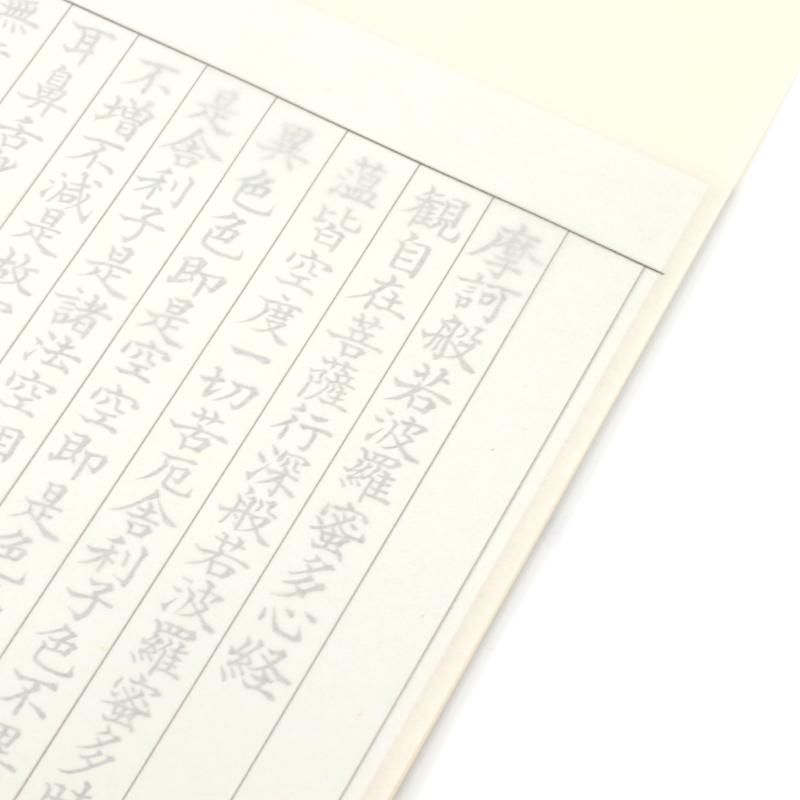 摩訶般若波羅蜜多心経
観自在菩薩行深般若波羅蜜多時
蘊皆空度一切苦厄舎利子色不異
異色色即是空空即是色
是舎利子是諸法空相
不増不減是故
耳鼻舌
無